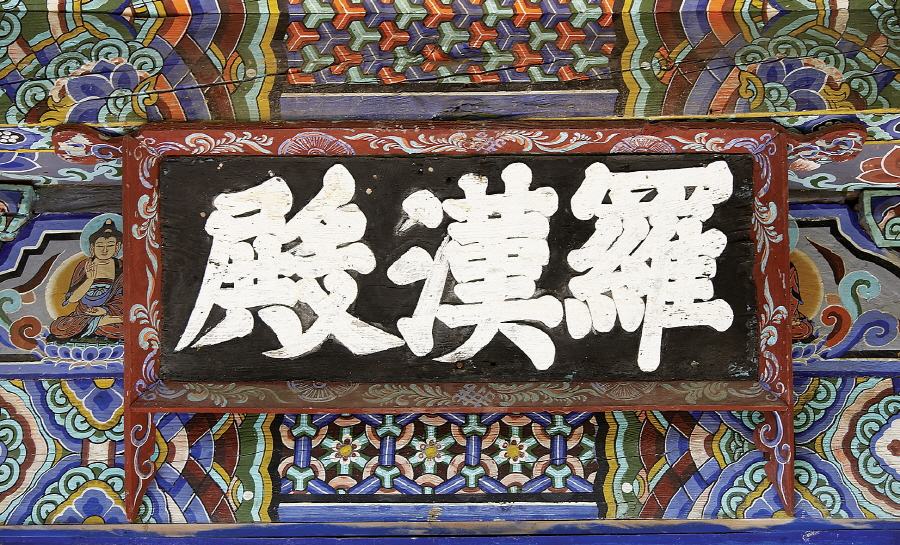 羅漢殿